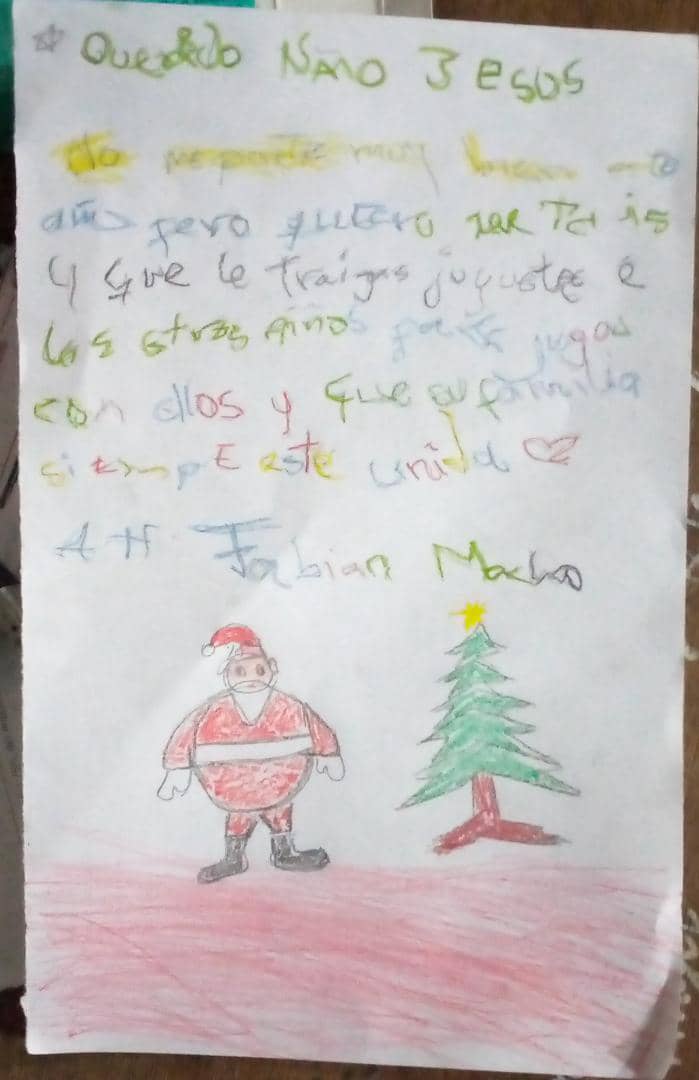 Querido Niño Jesos
me porte muy bien
año pero quiero
y que le traigas juguetes a
los otros niños para jugar
con ellos y que su familia
siempre este unida
ATT. Fabian Macho